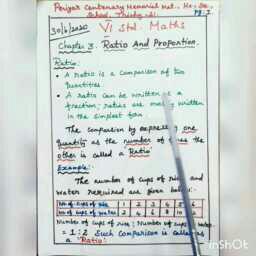 Periyar Centenary Memorial Mat. Hr. Sec.
School, Trichy-21. Pg:1
30/6/2020 VI std. Maths
Chapter 3. Ratio And Proportion.
Ratio:
• A ratio is a comparison of two
quantities.
• A ratio can be written as a
fraction; ratios are mostly written
in the simplest form.
The comparison by expressing one
quantity as the number of times the
other is called a Ratio
Example:
The number of cups of rice and
water required are given below:-
No. of cups of rice 1 2 3 4 5
No. of cups of water 2 4 6 8 10
Number of cups of rice : Number of cups of water
= 1:2 Such comparison is called as
a "Ratio
InShOt